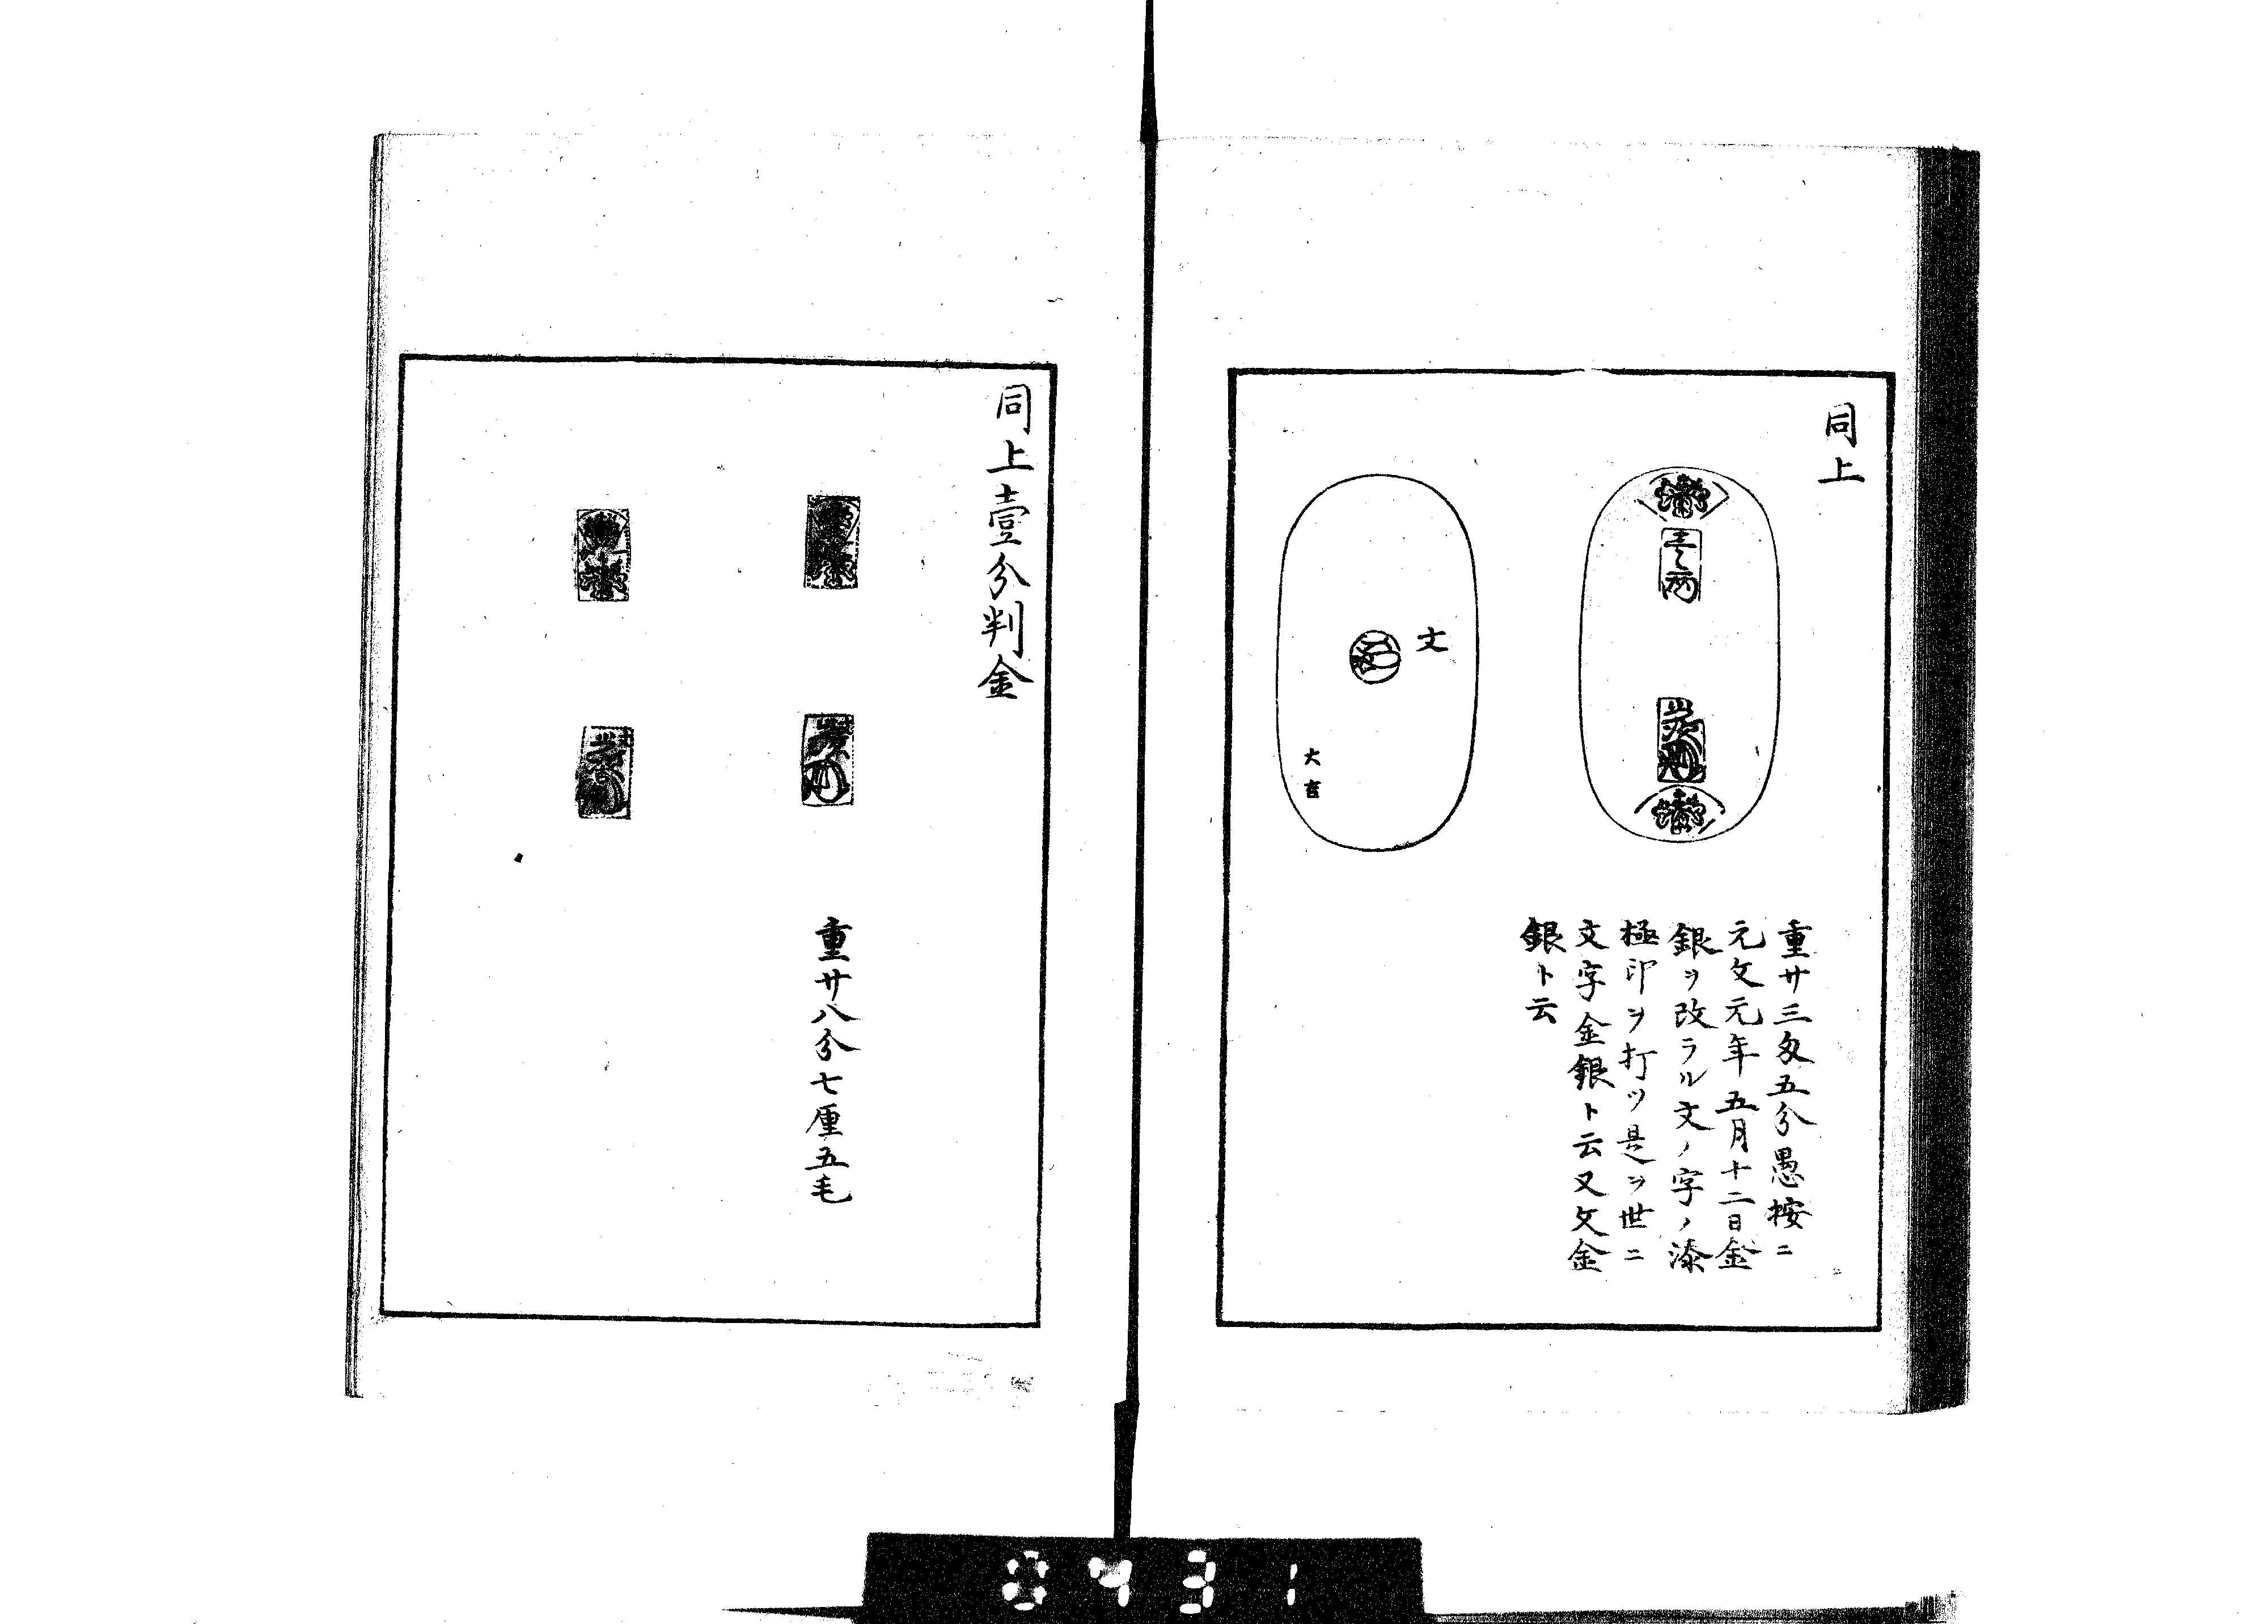 同上
壹両
文
大
吉
重廿三匁五分愚按ニ
元文元年五月十二日金
銀ヲ改ラル文ノ字ノ漆
極印ヲ打ツ是ヲ世ニ
文字金銀ト云又文金
銀ト云
同上壹分判金
重廿八分七厘五毛
0431